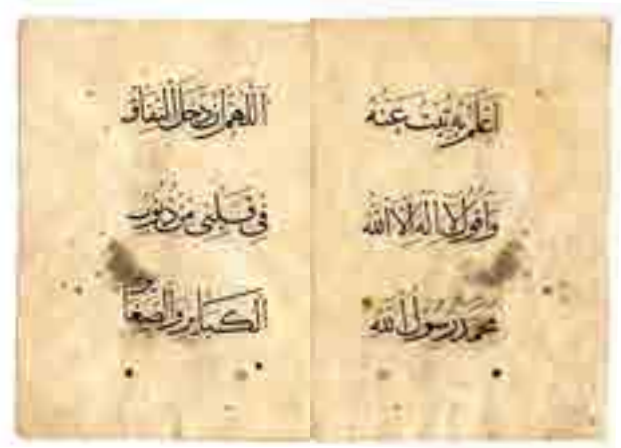 اعلم به تبت عنه
واقول لا اله الا الله
محمد رسول الله
اللهم ان دخل النفاق
في قلبي من ذنوب
الكباير والصغا